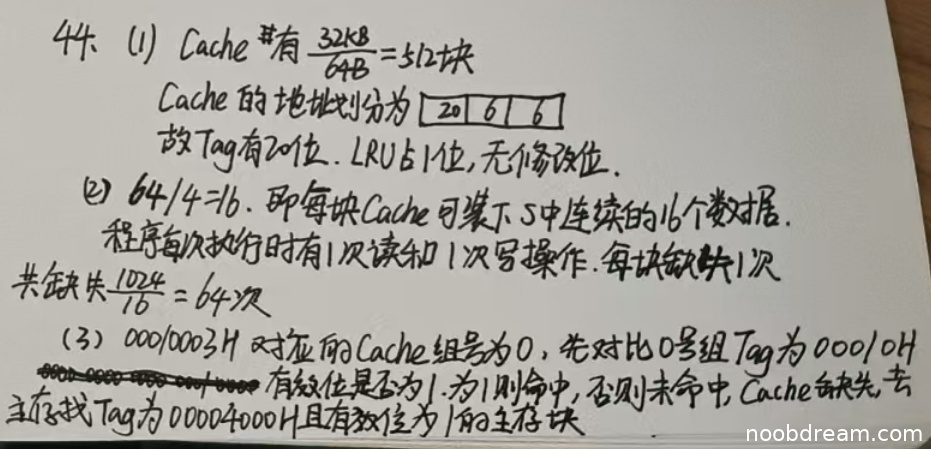 44、(1) Cache 有 32KB/64B = 512块
Cache 的地址划分为 20 | 6 | 6
故Tag有20位. LRU占1位,无修改位.
(2) 64/4=16. 即每块Cache可装下S中连续的16个数据.
程序每次执行时有1次读和1次写操作.每块缺失1次
共缺失 1024/16 = 64次
(3) 00010003H 对应的Cache组号为0,先对比0号组Tag为00010H
有效位是否为1.为1则命中,否则未命中,Cache缺失,去
主存找Tag为00004000H且有效位为1的主存块
noobdream.com